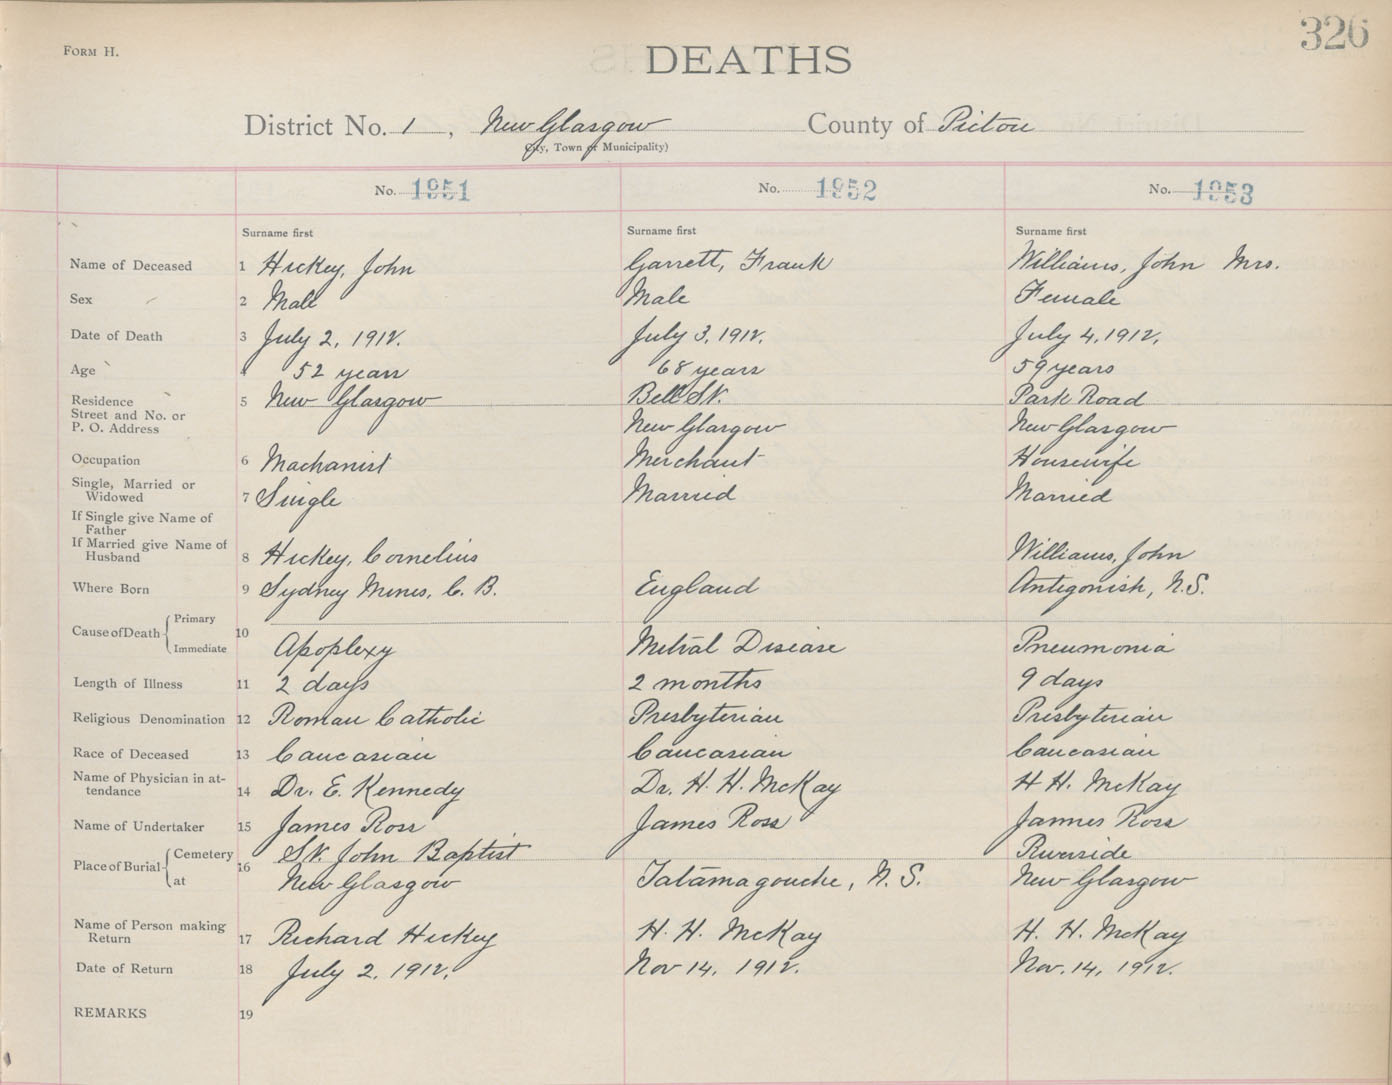 326
FORM H.
DEATHS
District No. 1, New Glasgow County of Pictou
City, Town or Municipality)
No. 1951 No. 1952 No. 1953
Surname first Surname first Surname first
Name of Deceased 1 Hickey, John Garrett, Frank Williams, John Mrs.
Sex 2 Male Male Female
Date of Death 3 July 2, 1912. July 3, 1912. July 4, 1912.
Age 4 52 years 68 years 59 years
Residence 5 New Glasgow Bell St. Park Road
Street and No. or
P. O. Address New Glasgow New Glasgow
Occupation 6 Machanist Merchant Housewife
Single, Married or
Widowed 7 Single Married Married
If Single give Name of
Father
If Married give Name of
Husband 8 Hickey, Cornelius Williams, John
Where Born 9 Sydney Mines, C. B. England Antigonish, N.S.
Cause of Death Primary 10
Immediate Apoplexy Mitral Disease Pneumonia
Length of Illness 11 2 days 2 months 9 days
Religious Denomination 12 Roman Catholic Presbyterian Presbyterian
Race of Deceased 13 Caucasian Caucasian Caucasian
Name of Physician in at-
tendance 14 Dr. E. Kennedy Dr. H. H. McKay H H. McKay
Name of Undertaker 15 James Ross James Ross James Ross
Place of Burial Cemetery 16 St. John Baptist Riverside
at New Glasgow Tatamagouche, N. S. New Glasgow
Name of Person making
Return 17 Richard Hickey H. H. McKay H. H. McKay
Date of Return 18 July 2, 1912. Nov 14, 1912. Nov. 14, 1912.
REMARKS 19